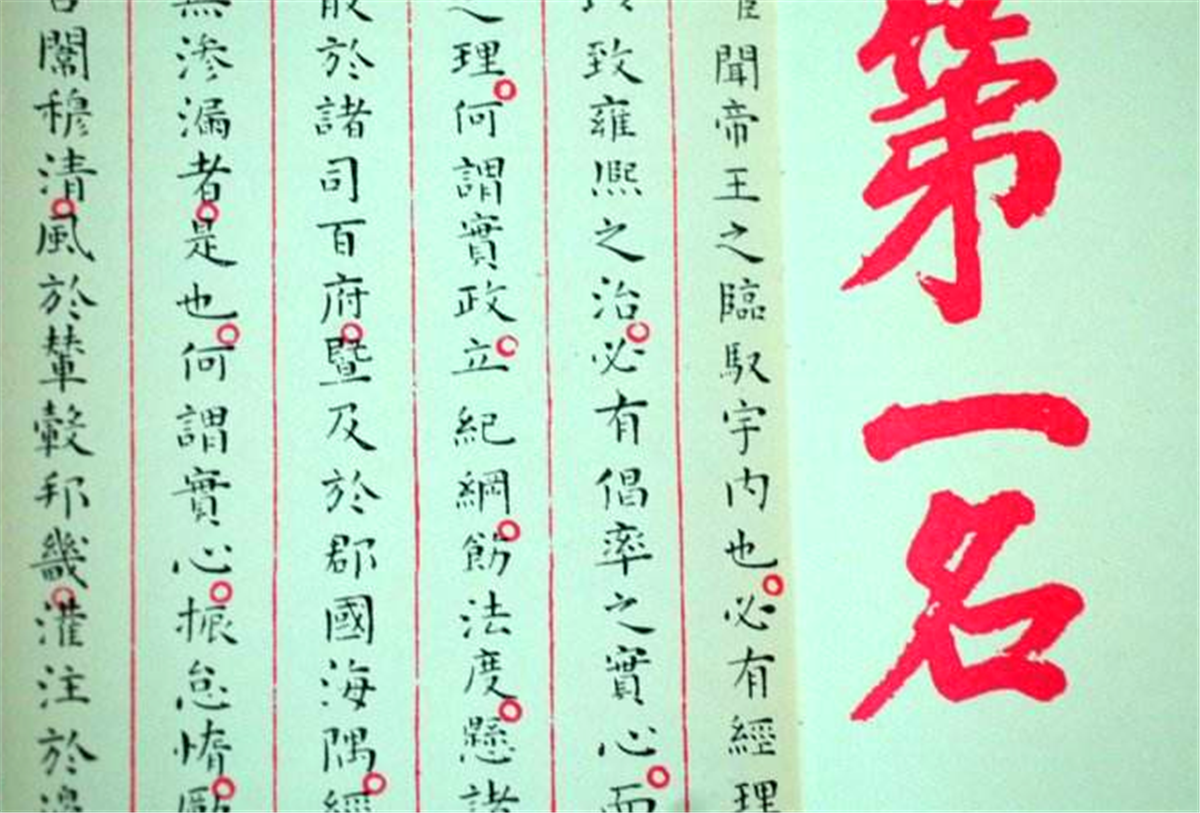 第一名
聞帝王之臨馭宇内也必有經理
致雍熙之治必有倡率之實心而
之理何謂實政立紀綱飭法度懸諸
於諸司百府暨及於郡國海隅經
無滲漏者是也何謂實心振怠惰勵
闇穆清風於輦轂邦畿灌注於